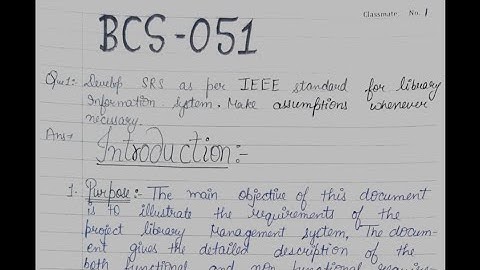 Classmate No. 1
BCS-051
Qu1:- Develop SRS as per IEEE standard for library
Information System. Make assumptions whenever
necessary.
Ans→
Introduction:-
1. Purpose:- The main objective of this document
is to illustrate the requirements of the
project library Management system, The docum-
ent gives the detailed description of the
both functional and non functional